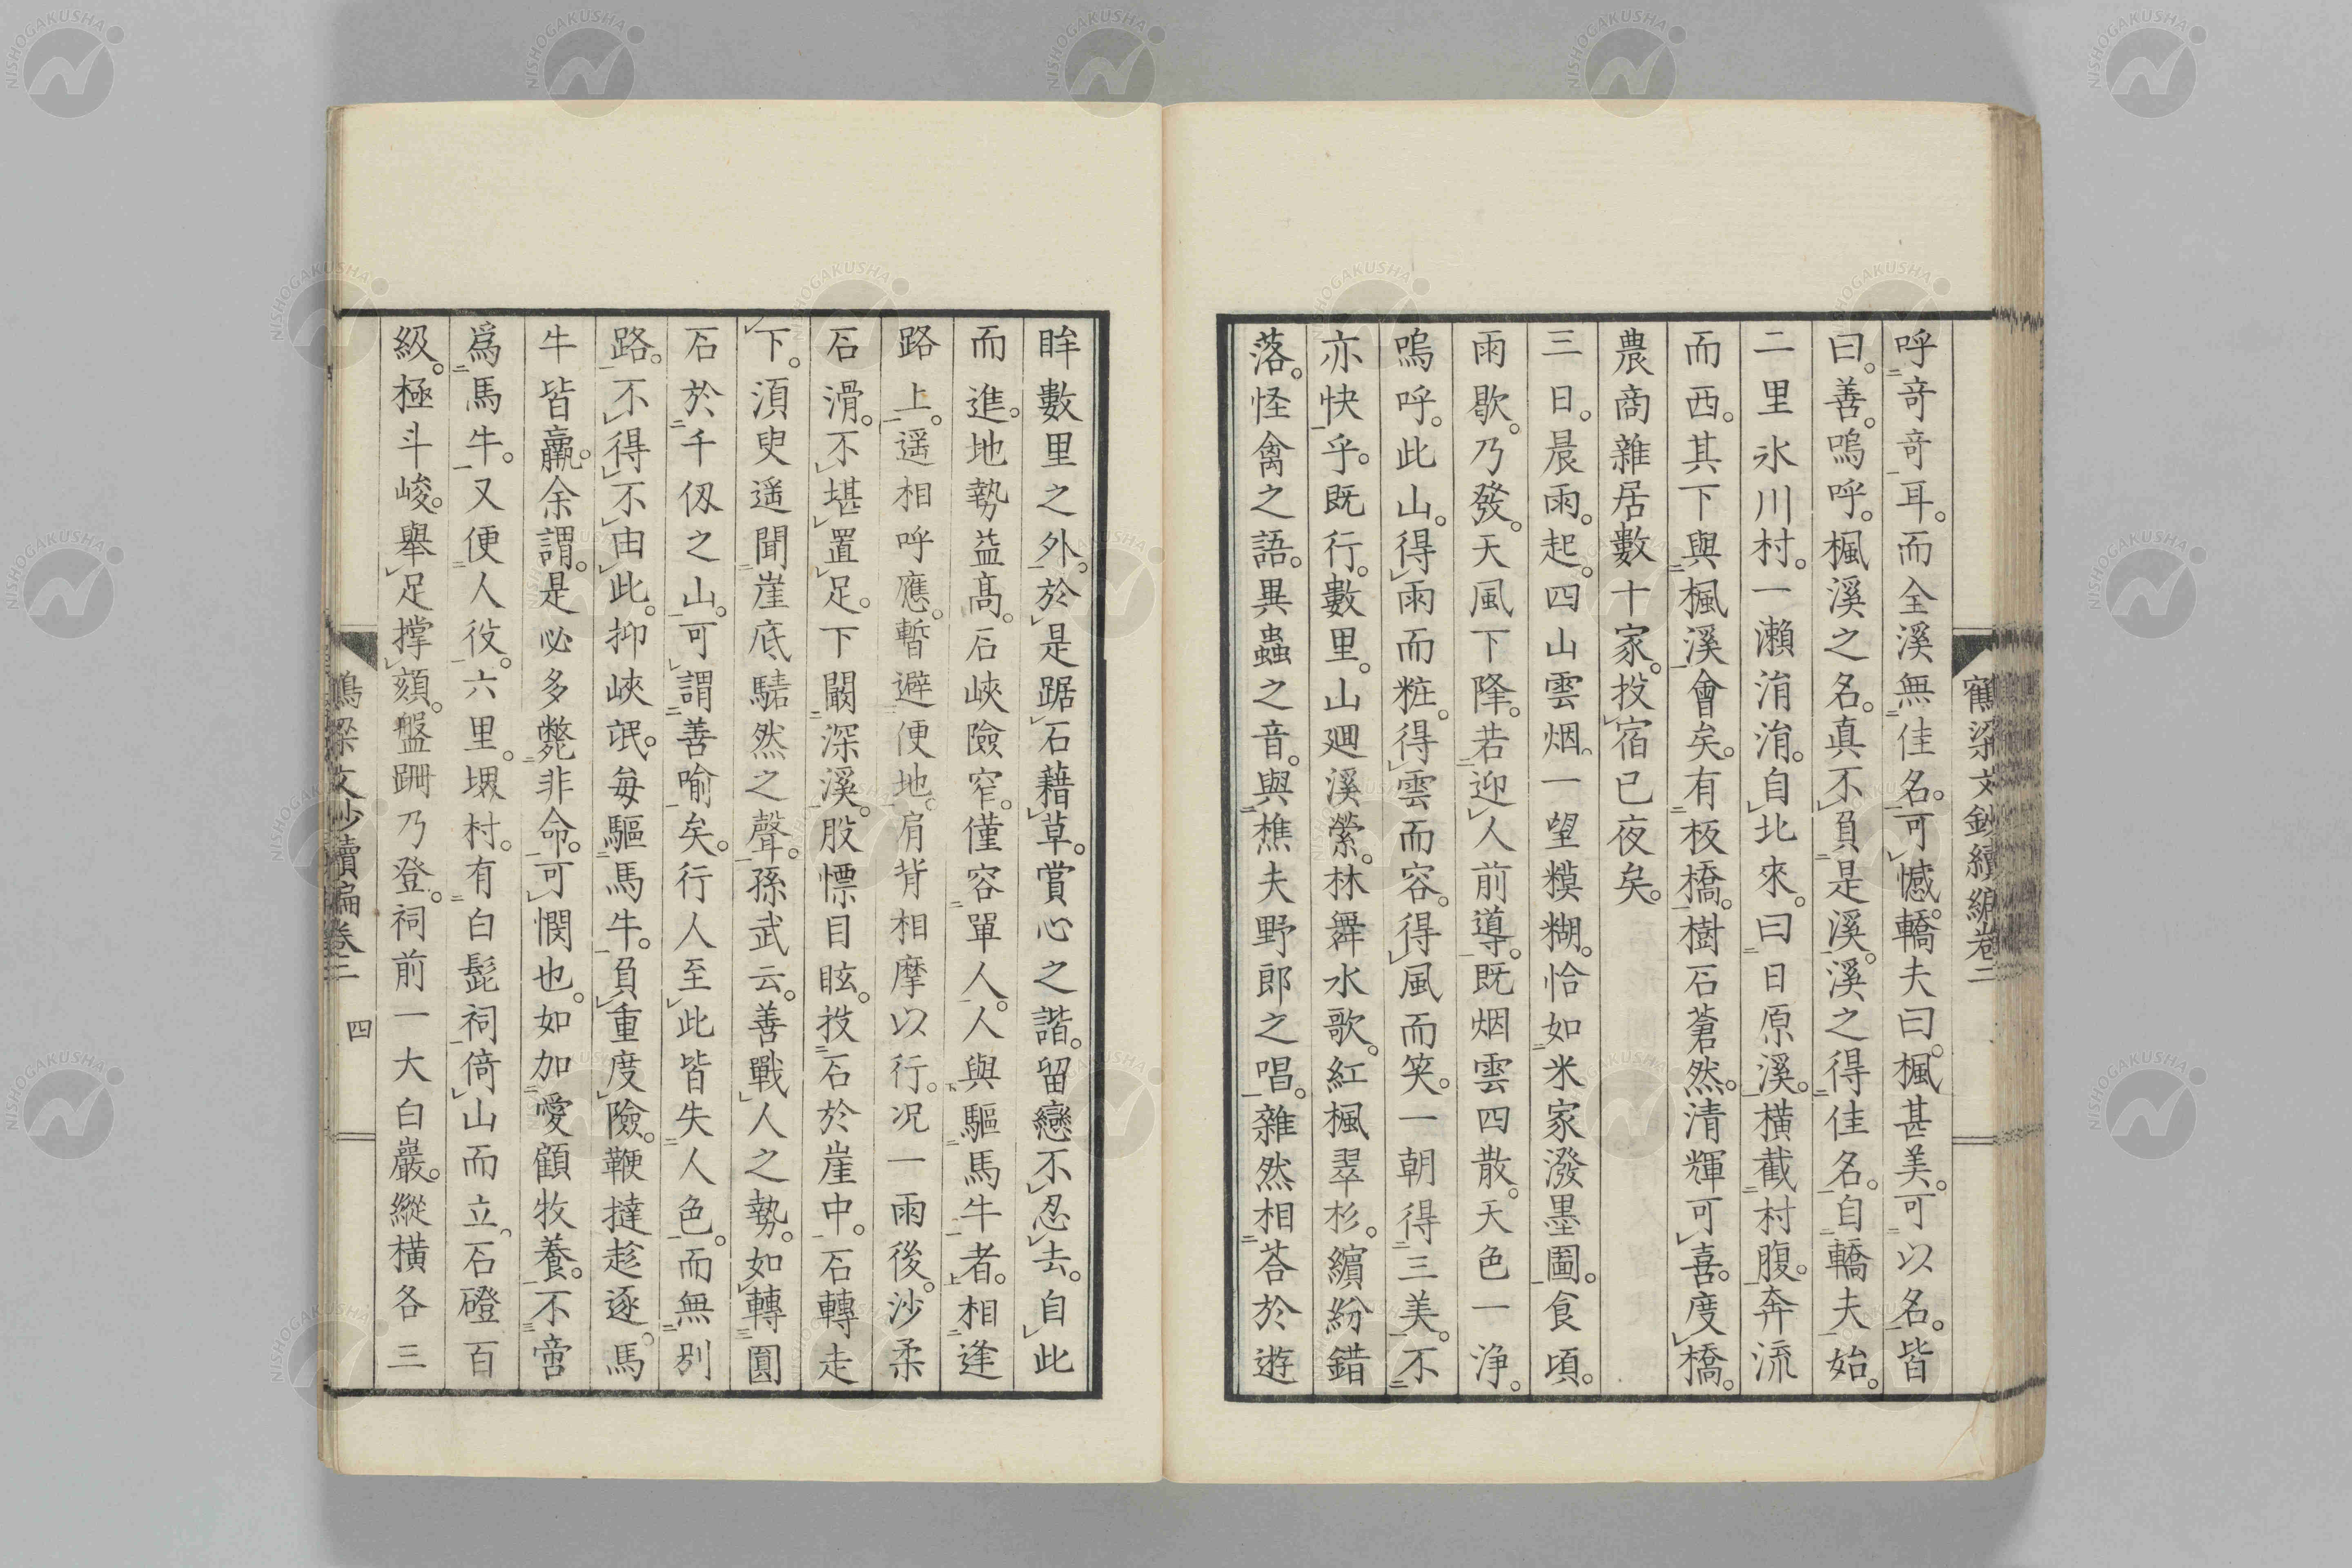 鶴梁文鈔續編卷二
呼奇奇耳。而全溪無佳名。可憾。轎夫曰。楓甚美。可以名。皆
曰。善。嗚呼。楓溪之名。真不負是溪。溪之得佳名。自轎夫始。
二里氷川村。一瀨洧洧。自北來。曰日原溪。橫截村腹。奔流
而西。其下與楓溪會矣。有板橋。樹石蒼然。清輝可喜。度橋。
農商雜居數十家。投宿已夜矣。
三日。晨雨。起。四山雲烟。一望糢糊。恰如米家潑墨圖。食頃。
雨歇。乃發。天風下降。若迎人前導。既烟雲四散。天色一浄。
嗚呼。此山。得雨而粧。得雲而容。得風而笑。一朝得三美。不
亦快乎。既行。數里。山廻溪縈。林舞水歌。紅楓翠杉。繽紛錯
落。怪禽之語。異蟲之音。與樵夫野郎之唱。雜然相荅於遊
眸數里之外。於是踞石藉草。賞心之諧。留戀不忍去。自此
而進。地勢益高。石峽險窄。僅容單人。人與驅馬牛者。相逢
路上。遥相呼應。暫避便地。肩背相摩以行。况一雨後。沙柔
石滑。不堪置足。下闞深溪。股慓目眩。投石於崖中。石轉走
下。湏臾遥聞崖底騞然之聲。孫武云。善戰人之勢。如轉圓
石於千仭之山。可謂善喻矣。行人至此皆失人色。而無別
路。不得不由此。抑峽氓。每驅馬牛。負重度險。鞭撻趁逐。馬
牛皆羸。余謂。是必多斃非命。可憫也。如加愛顧牧養。不啻
爲馬牛。又便人役。六里。堺村。有白髭祠。倚山而立。石磴百
級。極斗峻。舉足撑頦。盤跚乃登。祠前一大白巖。縱橫各三
鶴梁文鈔續編卷二 四
NISHOGAKUSHA